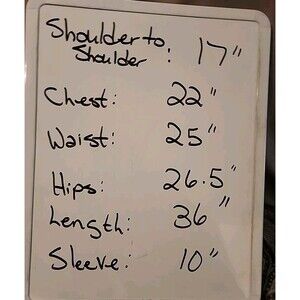 Shoulder to
Shoulder : 17"
Chest: 22"
Waist: 25"
Hips: 26.5"
Length: 36"
Sleeve: 10"